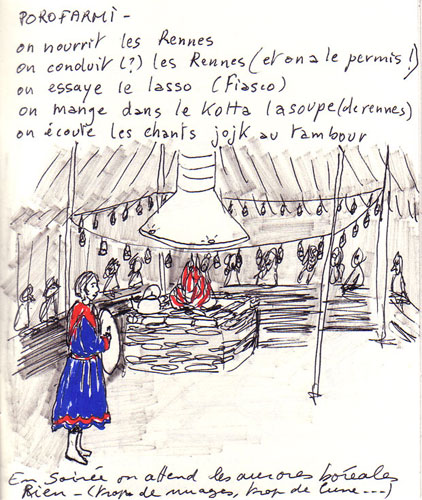 POROFARMI -
on nourrit les Rennes
on conduit (?) les Rennes (et on a le permis !)
on essaye le lasso (Fiasco)
on mange dans le Kotta la soupe (de rennes)
on écoute les chants jojk au tambour
En soirée on attend les aurores boréales
Rien - (trop de nuages, trop de lune ---)